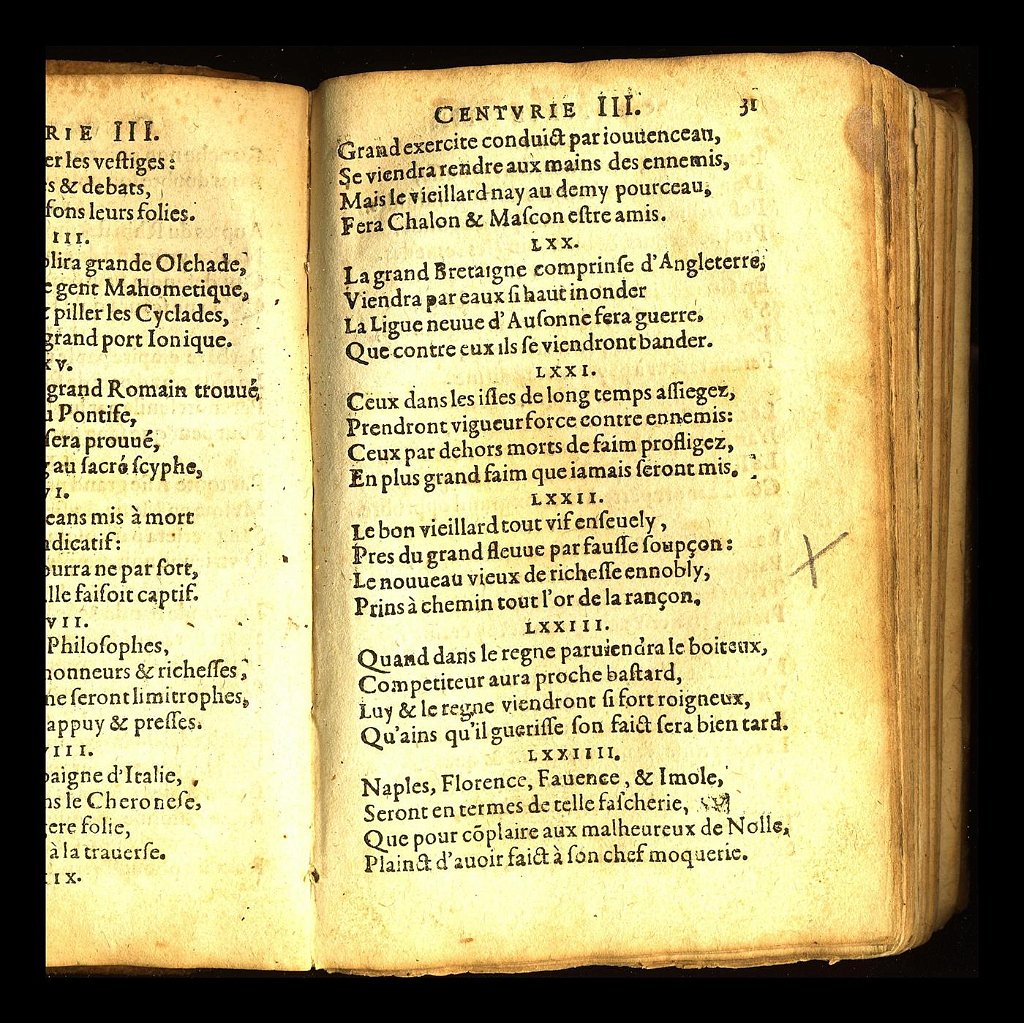 RIE III.
er les veſtiges:
s & debats,
ſons leurs folies.
III.
lira grande Olchade,
gent Mahometique,
piller les Cyclades,
grand port Ionique.
XV.
grand Romain trouué
Pontife,
ſera prouué,
au ſacré ſcyphe,
VI.
eans mis à mort
dicatif:
ourra ne par ſort,
lle faiſoit captif.
VII.
Philoſophes,
honneurs & richeſſes,
ne ſeront limitrophes,
appuy & preſſes.
VIII.
paigne d'Italie,
ns le Cheroneſe,
ere folie,
à la trauerſe.
IX.
CENTVRIE III. 31
Grand exercite conduict par iouuenceau,
Se viendra rendre aux mains des ennemis,
Mais le vieillard nay au demy pourceau,
Fera Chalon & Maſcon eſtre amis.
LXX.
La grand Bretaigne comprinſe d'Angleterre,
Viendra par eaux ſi haut inonder
La Ligue neuue d'Auſonne fera guerre.
Que contre eux ils ſe viendront bander.
LXXI.
Ceux dans les iſles de long temps aſſiegez,
Prendront vigueur force contre ennemis:
Ceux par dehors morts de faim profligez,
En plus grand faim que iamais ſeront mis.
LXXII.
Le bon vieillard tout vif enſeuely,
Pres du grand fleuue par fauſſe ſoupçon:
Le nouueau vieux de richeſſe ennobly,
Prins à chemin tout l'or de la rançon.
LXXIII.
Quand dans le regne paruiendra le boiteux,
Competiteur aura proche baſtard,
Luy & le regne viendront ſi fort roigneux,
Qu'ains qu'il gueriſſe ſon faict ſera bien tard.
LXXIIII.
Naples, Florence, Fauence, & Imole,
Seront en termes de telle faſcherie,
Que pour cõplaire aux malheureux de Nolle,
Plainct d'auoir faict à ſon chef moquerie.